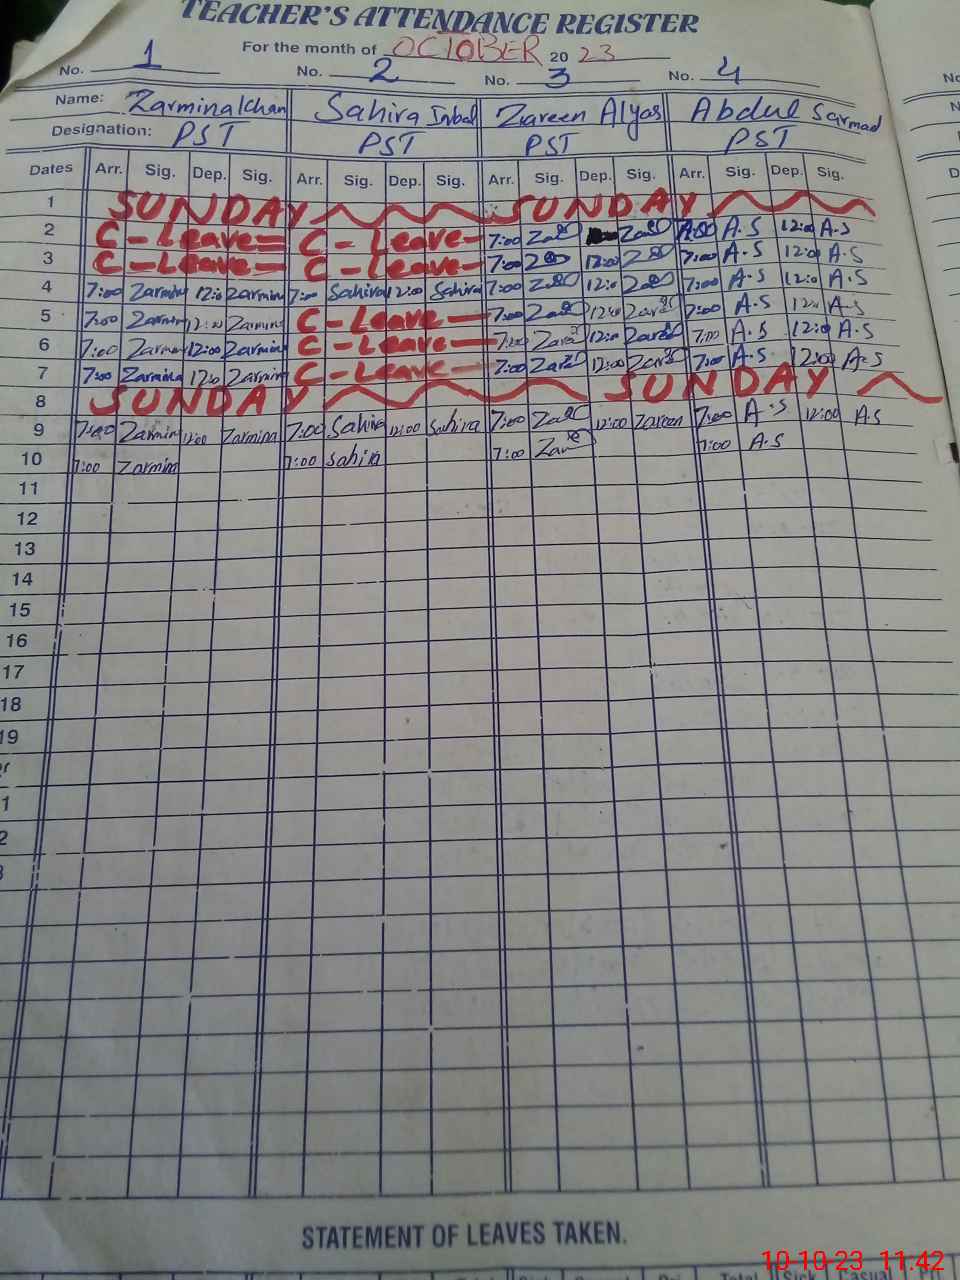 TEACHER'S ATTENDANCE REGISTER
For the month of OCTOBER 2023
No. 1 No. 2 No. 3 No. 4
Name: Zarmina Khan Sahira Iqbal Zareen Alyas Abdul Sarmad
Designation: PST PST PST PST
Dates Arr. Sig. Dep. Sig. Arr. Sig. Dep. Sig. Arr. Sig. Dep. Sig. Arr. Sig. Dep. Sig.
1 SUNDAY SUNDAY
2 C-Leave C-Leave 7:00 7:00 A.S 12:00 A.S
3 C-Leave C-Leave 7:00 12:00 7:00 A.S 12:00 A.S
4 7:00 Zarmina 12:0 Zarmina 7:00 Sahira 12:00 Sahira 7:00 12:0 7:00 A.S 12:0 A.S
5 7:00 Zarmina 12:00 Zarmina C-Leave 7:00 12:00 7:00 A.S 12:0 A.S
6 7:00 Zarmina 12:00 Zarmina C-Leave 7:00 12:0 7:00 A.S 12:00 A.S
7 7:00 Zarmina 12:0 Zarmina C-Leave 7:00 12:00 7:00 A.S 12:00 A.S
8 SUNDAY SUNDAY
9 7:00 Zarmin 12:00 Zarmina 7:00 Sahira 12:00 Sahira 7:00 12:00 Zareen 7:00 A.S 12:00 A.S
10 7:00 Zarmin 7:00 Sahira 7:00 7:00 A.S
11
12
13
14
15
16
17
18
19
STATEMENT OF LEAVES TAKEN.
10-10-23 11:42